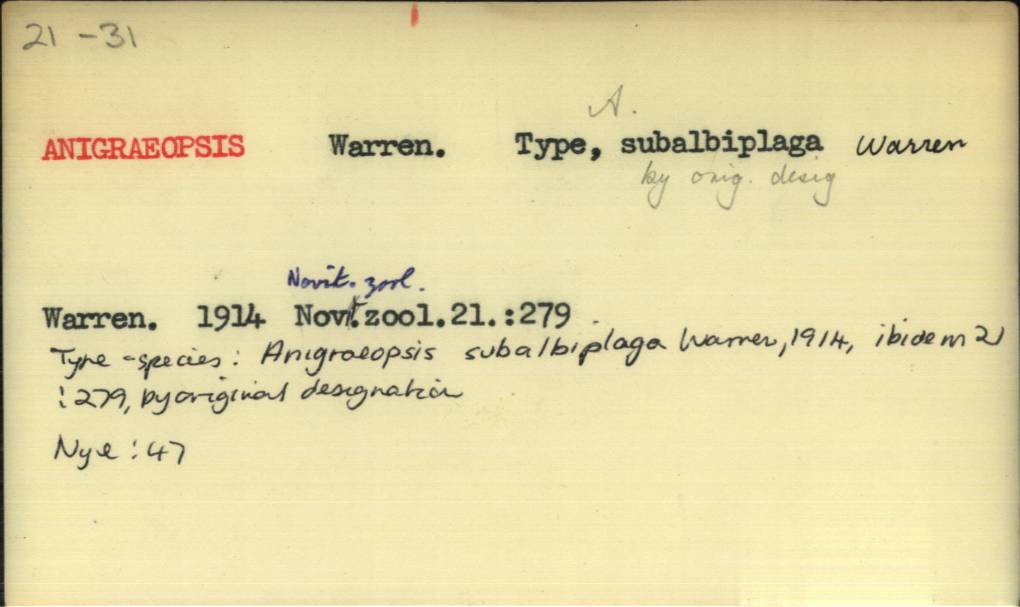 21 - 31
A.
ANIGRAEOPSIS Warren. Type, subalbiplaga Warren
by orig. desig
Novit. zool.
Warren. 1914 Novt.zool.21.:279.
Type-species: Anigraeopsis subalbiplaga Warren, 1914, ibidem 21
:279, by original designation
Nye : 47